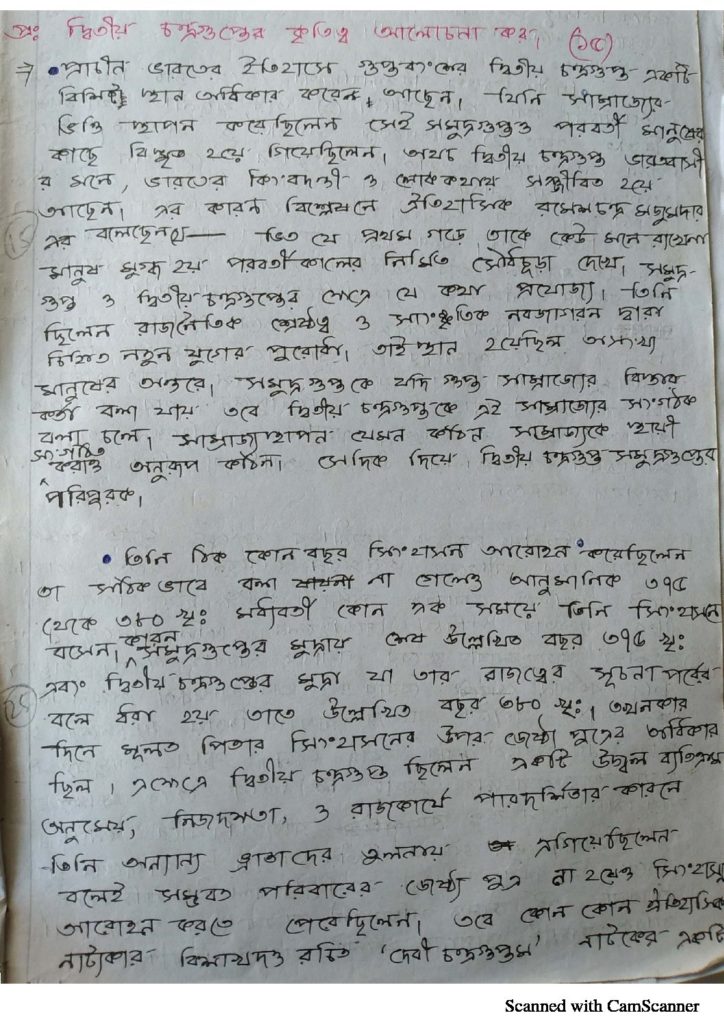 প্রঃ দ্বিতীয় চন্দ্রগুপ্তের কৃতিত্ব আলোচনা কর। (১৫)
⇒ • প্রাচীন ভারতের ইতিহাসে গুপ্তবংশের দ্বিতীয় চন্দ্রগুপ্ত একটি
বিশিষ্ট স্থান অধিকার করেন আছেন। যিনি সাম্রাজ্যের
ভিত্তি স্থাপন করেছিলেন সেই সমুদ্রগুপ্তও পরবর্তী মানুষের
কাছে বিস্মৃত হয়ে গিয়েছিলেন। অথচ দ্বিতীয় চন্দ্রগুপ্ত ভারতবাসী
র মনে, ভারতের কিংবদন্তী ও লোককথায় সঞ্জীবিত হয়ে
আছেন। এর কারন বিশ্লেষনে ঐতিহাসিক রমেশচন্দ্র মজুমদার
15 এর বলেছেন যে — ভিত যে প্রথম গড়ে তাকে কেউ মনে রাখেনা
মানুষ মুগ্ধ হয় পরবর্তীকালের নির্মিত সৌধচূড়া দেখে। সমুদ্র-
গুপ্ত ও দ্বিতীয় চন্দ্রগুপ্তের ক্ষেত্রে যে কথা প্রযোজ্য। তিনি
ছিলেন রাজনৈতিক শ্রেষ্ঠত্ব ও সাংস্কৃতিক নবজাগরন দ্বারা
চিহ্নিত নতুন যুগের পুরোধা। তাই স্থান হয়েছিল অসংখ্য
মানুষের অন্তরে। সমুদ্রগুপ্তকে যদি গুপ্ত সাম্রাজ্যের বিস্তার
কর্তা বলা যায় তবে দ্বিতীয় চন্দ্রগুপ্তকে এই সাম্রাজ্যের সংগঠক
বলা চলে। সাম্রাজ্যস্থাপন যেমন কঠিন সাম্রাজ্যকে স্থায়ী
সংগঠিত করাও অনুরূপ কঠিন। সেদিক দিয়ে দ্বিতীয় চন্দ্রগুপ্ত সমুদ্রগুপ্তের
পরিপূরক।
• তিনি ঠিক কোন বছর সিংহাসন আরোহন করেছিলেন
তা সঠিক ভাবে বলা না গেলেও আনুমানিক ৩৭৫
থেকে ৩৮০ খৃঃ মধ্যবর্তী কোন এক সময়ে তিনি সিংহাসনে
বসেন। কারন সমুদ্রগুপ্তের মুদ্রায় শেষ উল্লেখিত বছর ৩৭৫ খৃঃ
এবং দ্বিতীয় চন্দ্রগুপ্তের মুদ্রা যা তার রাজত্বের সূচনা পর্বের
বলে ধরা হয় তাতে উল্লেখিত বছর ৩৮০ খৃঃ। তখনকার
দিনে মূলত পিতার সিংহাসনের উপর জেষ্ঠ্য পুত্রের অধিকার
ছিল। এক্ষেত্রে দ্বিতীয় চন্দ্রগুপ্ত ছিলেন একটি উজ্জ্বল ব্যতিক্রম
অনুমেয়, নিজদক্ষতা, ও রাজকার্যে পারদর্শিতার কারনে
তিনি অন্যান্য ভ্রাতাদের তুলনায় এগিয়েছিলেন
বলেই সম্ভবত পরিবারের জেষ্ঠ্য পুত্র না হয়েও সিংহাসন
আরোহন করতে পেরেছিলেন। তবে কোন কোন ঐতিহাসিক
নাট্যকার বিশাখদত্ত রচিত 'দেবী চন্দ্রগুপ্তম' নাটকের একটি
Scanned with CamScanner